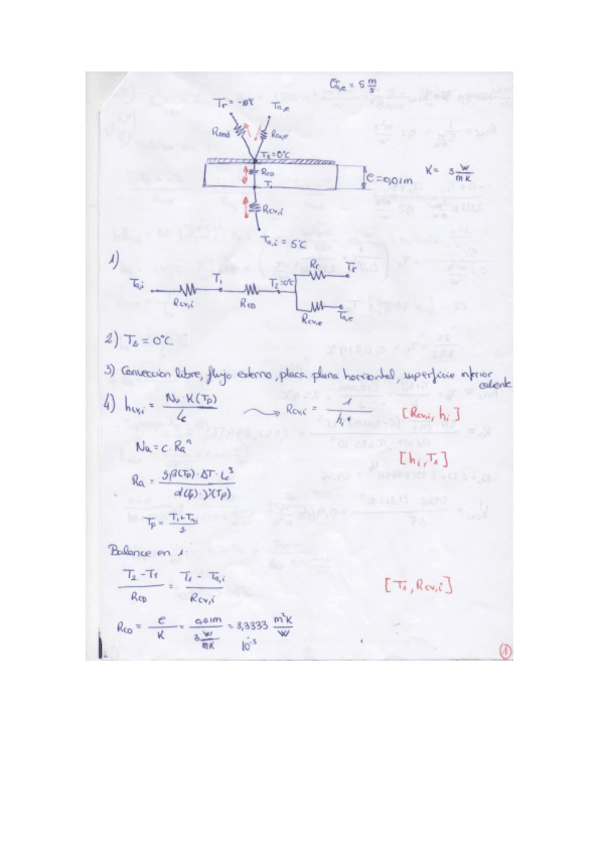 U_a,e = 5 m/s
T_r = -10°C   T_a,e
R_rad   R_cv,e
T_s = 0°C
R_CD
e = 0,01m   K = 3 W/mK
T_1
R_cv,i
T_a,i = 5°C
1)
T_a,i   T_1   T_2 = 0°C   R_r   T_r
R_cv,i   R_CD   R_cv,e   T_a,e
2) T_s = 0°C
3) Convección libre, flujo externo, placa plana horizontal, superficie inferior caliente
4) h_cv,i = Nu K(T_p) / L_c   R_cv,i = 1 / h_i   [R_cv,i, h_i]
Nu = c · Ra^n   [h_i, T_1]
Ra = gβ(T_p) · ΔT · L_c^3 / α(T_p) · ν(T_p)
T_p = T_1 + T_a,i / 2
Balance en 1:
T_2 - T_1 / R_CD = T_1 - T_a,i / R_cv,i   [T_1, R_cv,i]
R_CD = e / K = 0,01m / 3 W/mK = 3,3333 · 10^-3 m²K/W
1